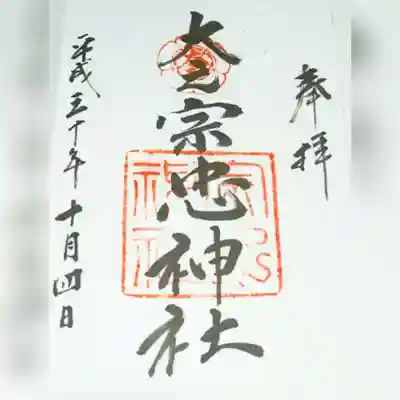 奉拝
宗忠神社
平成三十年十月四日